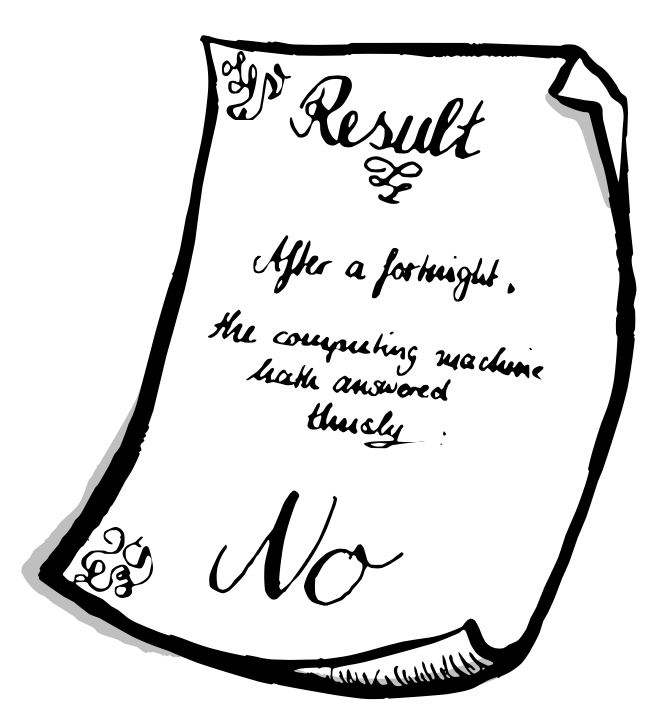 Result
After a fortnight.
the computing machine
hath answered
thusly :
No